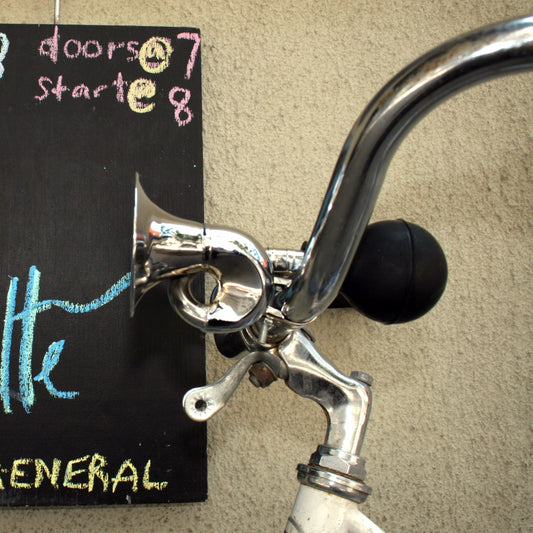 8 doors@7
start@8
tte
GENERAL